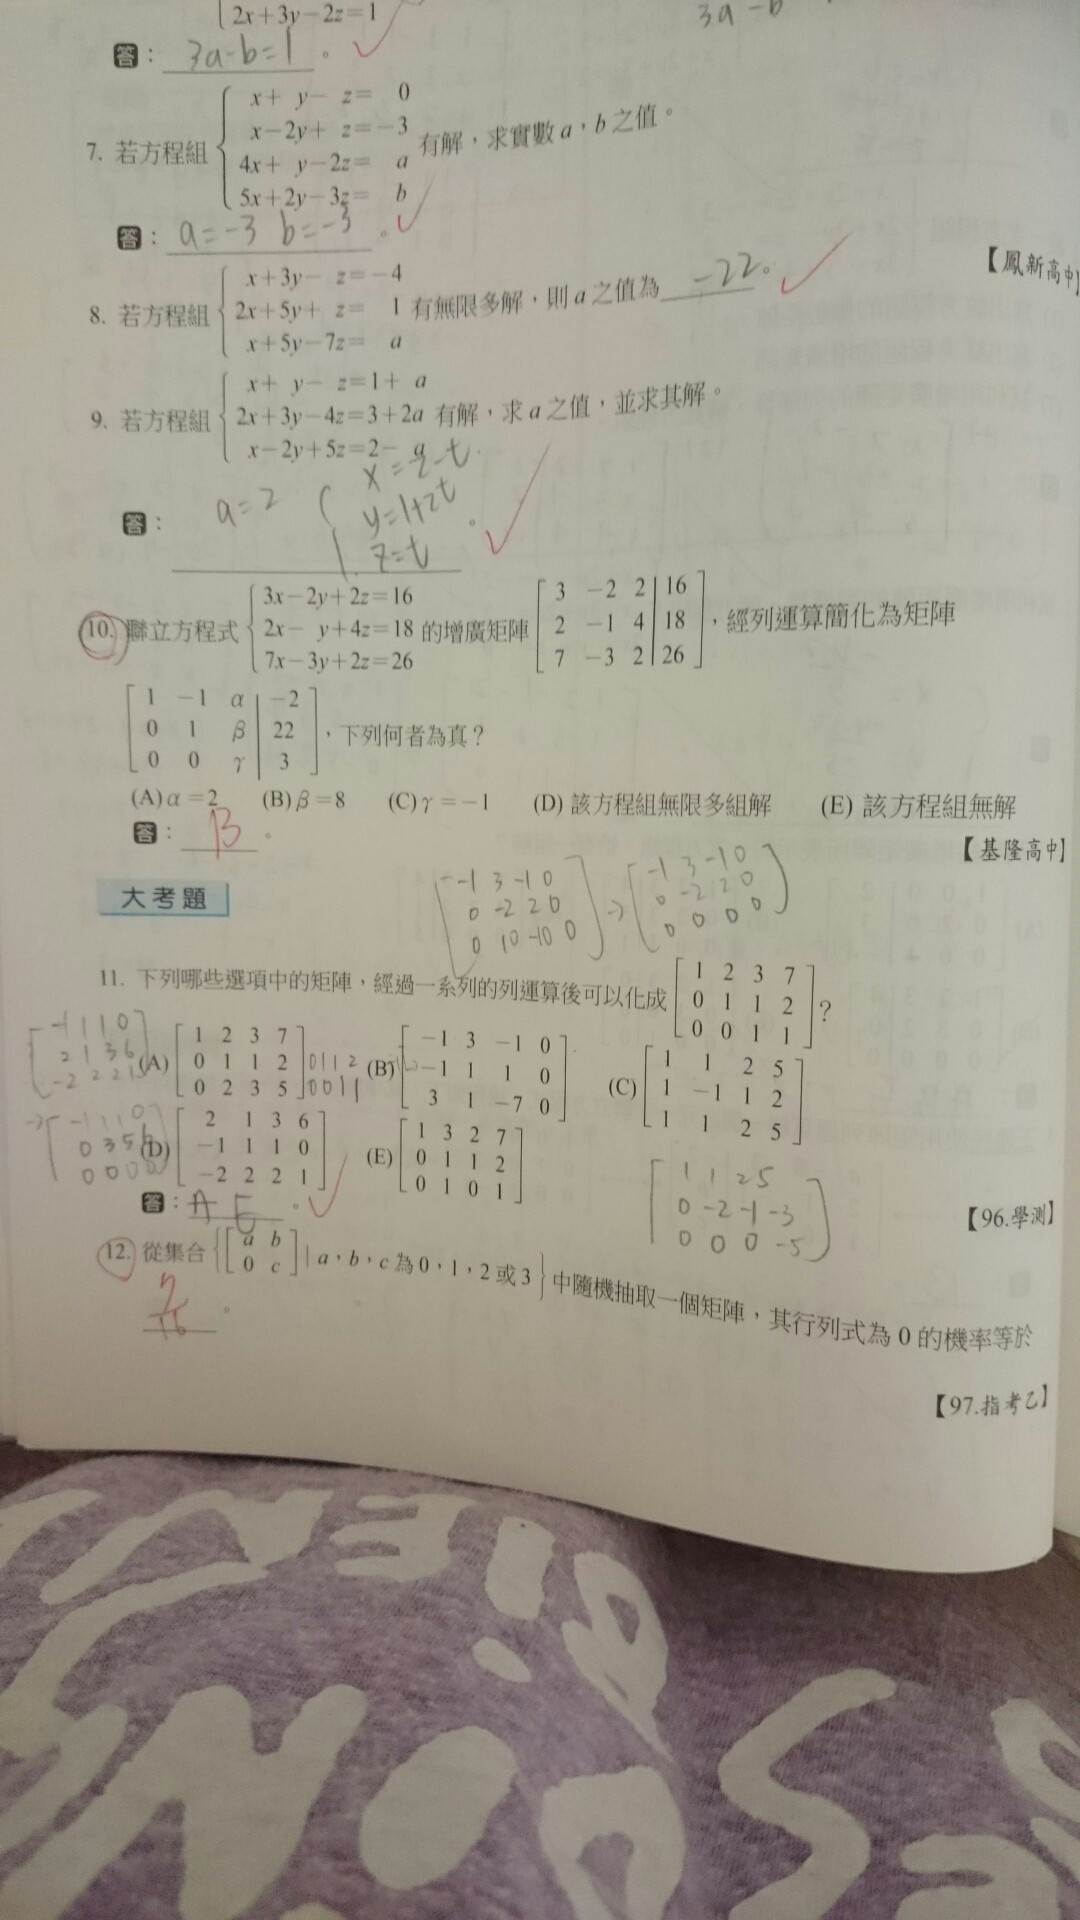 2x+3y-2z=1
3a-b
答：3a-b=1。
7. 若方程組 x+ y- z= 0
x-2y+ z=-3
4x+ y-2z= a
5x+2y-3z= b
有解，求實數a，b之值。
答：a=-3 b=-3。
【鳳新高中】
8. 若方程組 x+3y- z=-4
2x+5y+ z= 1
x+5y-7z= a
有無限多解，則a之值為 -22。
9. 若方程組 x+ y- z=1+ a
2x+3y-4z=3+2a
x-2y+5z=2- a
有解，求a之值，並求其解。
答：a=2
x=2-t
y=1+2t
z=t
。
10. 聯立方程式 3x-2y+2z=16
2x- y+4z=18
7x-3y+2z=26
的增廣矩陣
3 -2 2 | 16
2 -1 4 | 18
7 -3 2 | 26
，經列運算簡化為矩陣
1 -1 α | -2
0 1 β | 22
0 0 γ | 3
，下列何者為真？
(A) α=2 (B) β=8 (C) γ=-1 (D) 該方程組無限多組解 (E) 該方程組無解
答：B。
【基隆高中】
大考題
-1 3 -1 0
0 -2 2 0
0 10 -10 0
→
-1 3 -1 0
0 -2 2 0
0 0 0 0
11. 下列哪些選項中的矩陣，經過一系列的列運算後可以化成
1 2 3 7
0 1 1 2
0 0 1 1
？
-1 1 1 0
2 1 3 6
-2 2 2 1
(A)
1 2 3 7
0 1 1 2
0 2 3 5
0 1 1 2
0 0 1 1
(B)
-1 3 -1 0
-1 1 1 0
3 1 -7 0
(C)
1 1 2 5
1 -1 1 2
1 1 2 5
→
-1 1 1 0
0 3 5 6
(D)
2 1 3 6
-1 1 1 0
-2 2 2 1
(E)
1 3 2 7
0 1 1 2
0 1 0 1
答：A E。
1 1 2 5
0 -2 -1 -3
0 0 0 -5
【96.學測】
12. 從集合{[
a b
0 c
]|a，b，c為0，1，2或3}中隨機抽取一個矩陣，其行列式為0的機率等於
7
16
。
【97.指考乙】